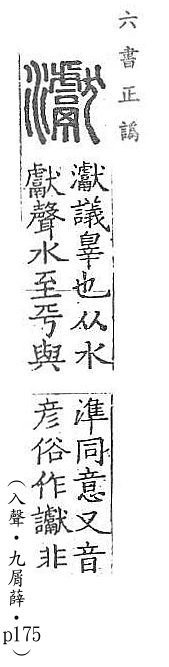 六書正譌
瀛
瀛議辠也从水
獻聲水至丂與
準同意又音
彦俗作讞非
(入聲・九屑薛・p175)